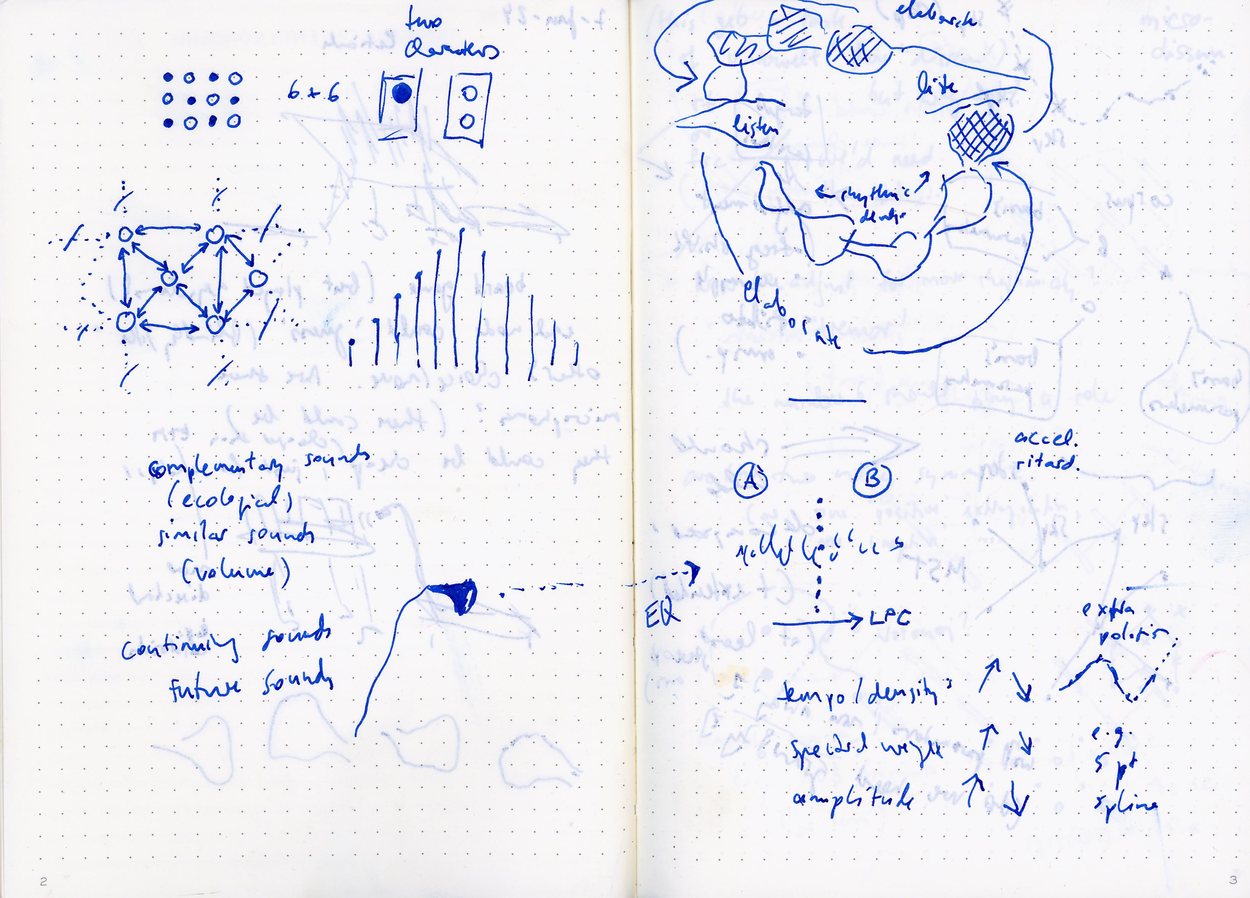 two
characters
6 x 6
complementary sounds
(ecological)
similar sounds
(volume)
continuing sounds
future sounds
2
elaborate
liste
listen
rhythmic
elaborate
accel.
ritard.
A
B
EQ
LPC
extra
polation
tempo/density
spectral weight
amplitude
e.g.
5 pt
spline
3